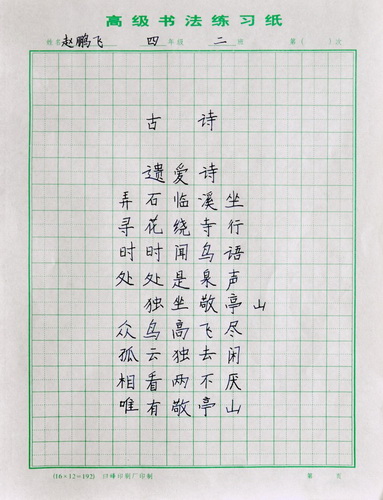 高级书法练习纸
姓名 赵鹏飞 四 年级 二 班 第( )次
古 诗
遗爱诗
弄石临溪坐
寻花绕寺行
时时闻鸟语
处处是泉声
独坐敬亭山
众鸟高飞尽
孤云独去闲
相看两不厌
唯有敬亭山
(16×12=192) 印刷厂印制 第 页